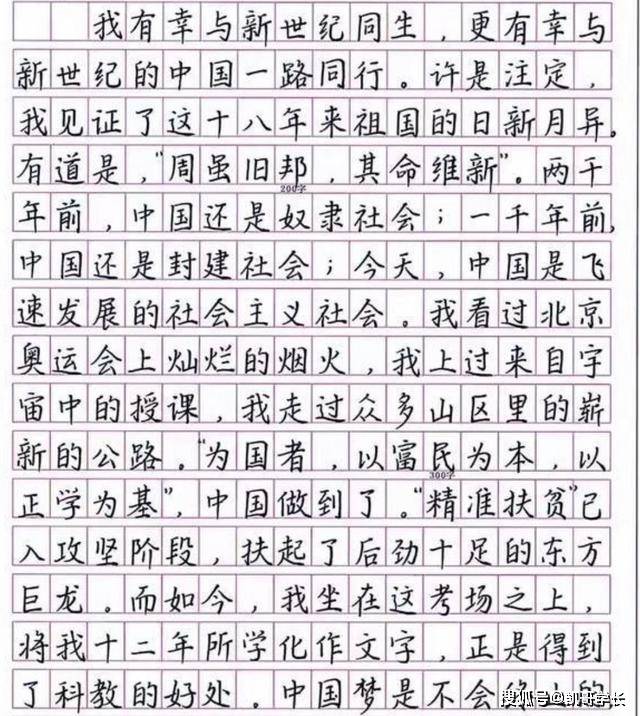 我有幸与新世纪同生，更有幸与
新世纪的中国一路同行。许是注定，
我见证了这十八年来祖国的日新月异。
有道是，“周虽旧邦，其命维新”。两千
200字
年前，中国还是奴隶社会；一千年前，
中国还是封建社会；今天，中国是飞
速发展的社会主义社会。我看过北京
奥运会上灿烂的烟火，我上过来自字
宙中的授课，我走过众多山区里的崭
新的公路。“为国者，以富民为本，以
300字
正学为基”，中国做到了。“精准扶贫”已
入攻坚阶段，扶起了后劲十足的东方
巨龙。而如今，我坐在这考场之上，
将我十二年所学化作文字，正是得到
了科教的好处。中国梦是不会 的
搜狐号@凯哥学长